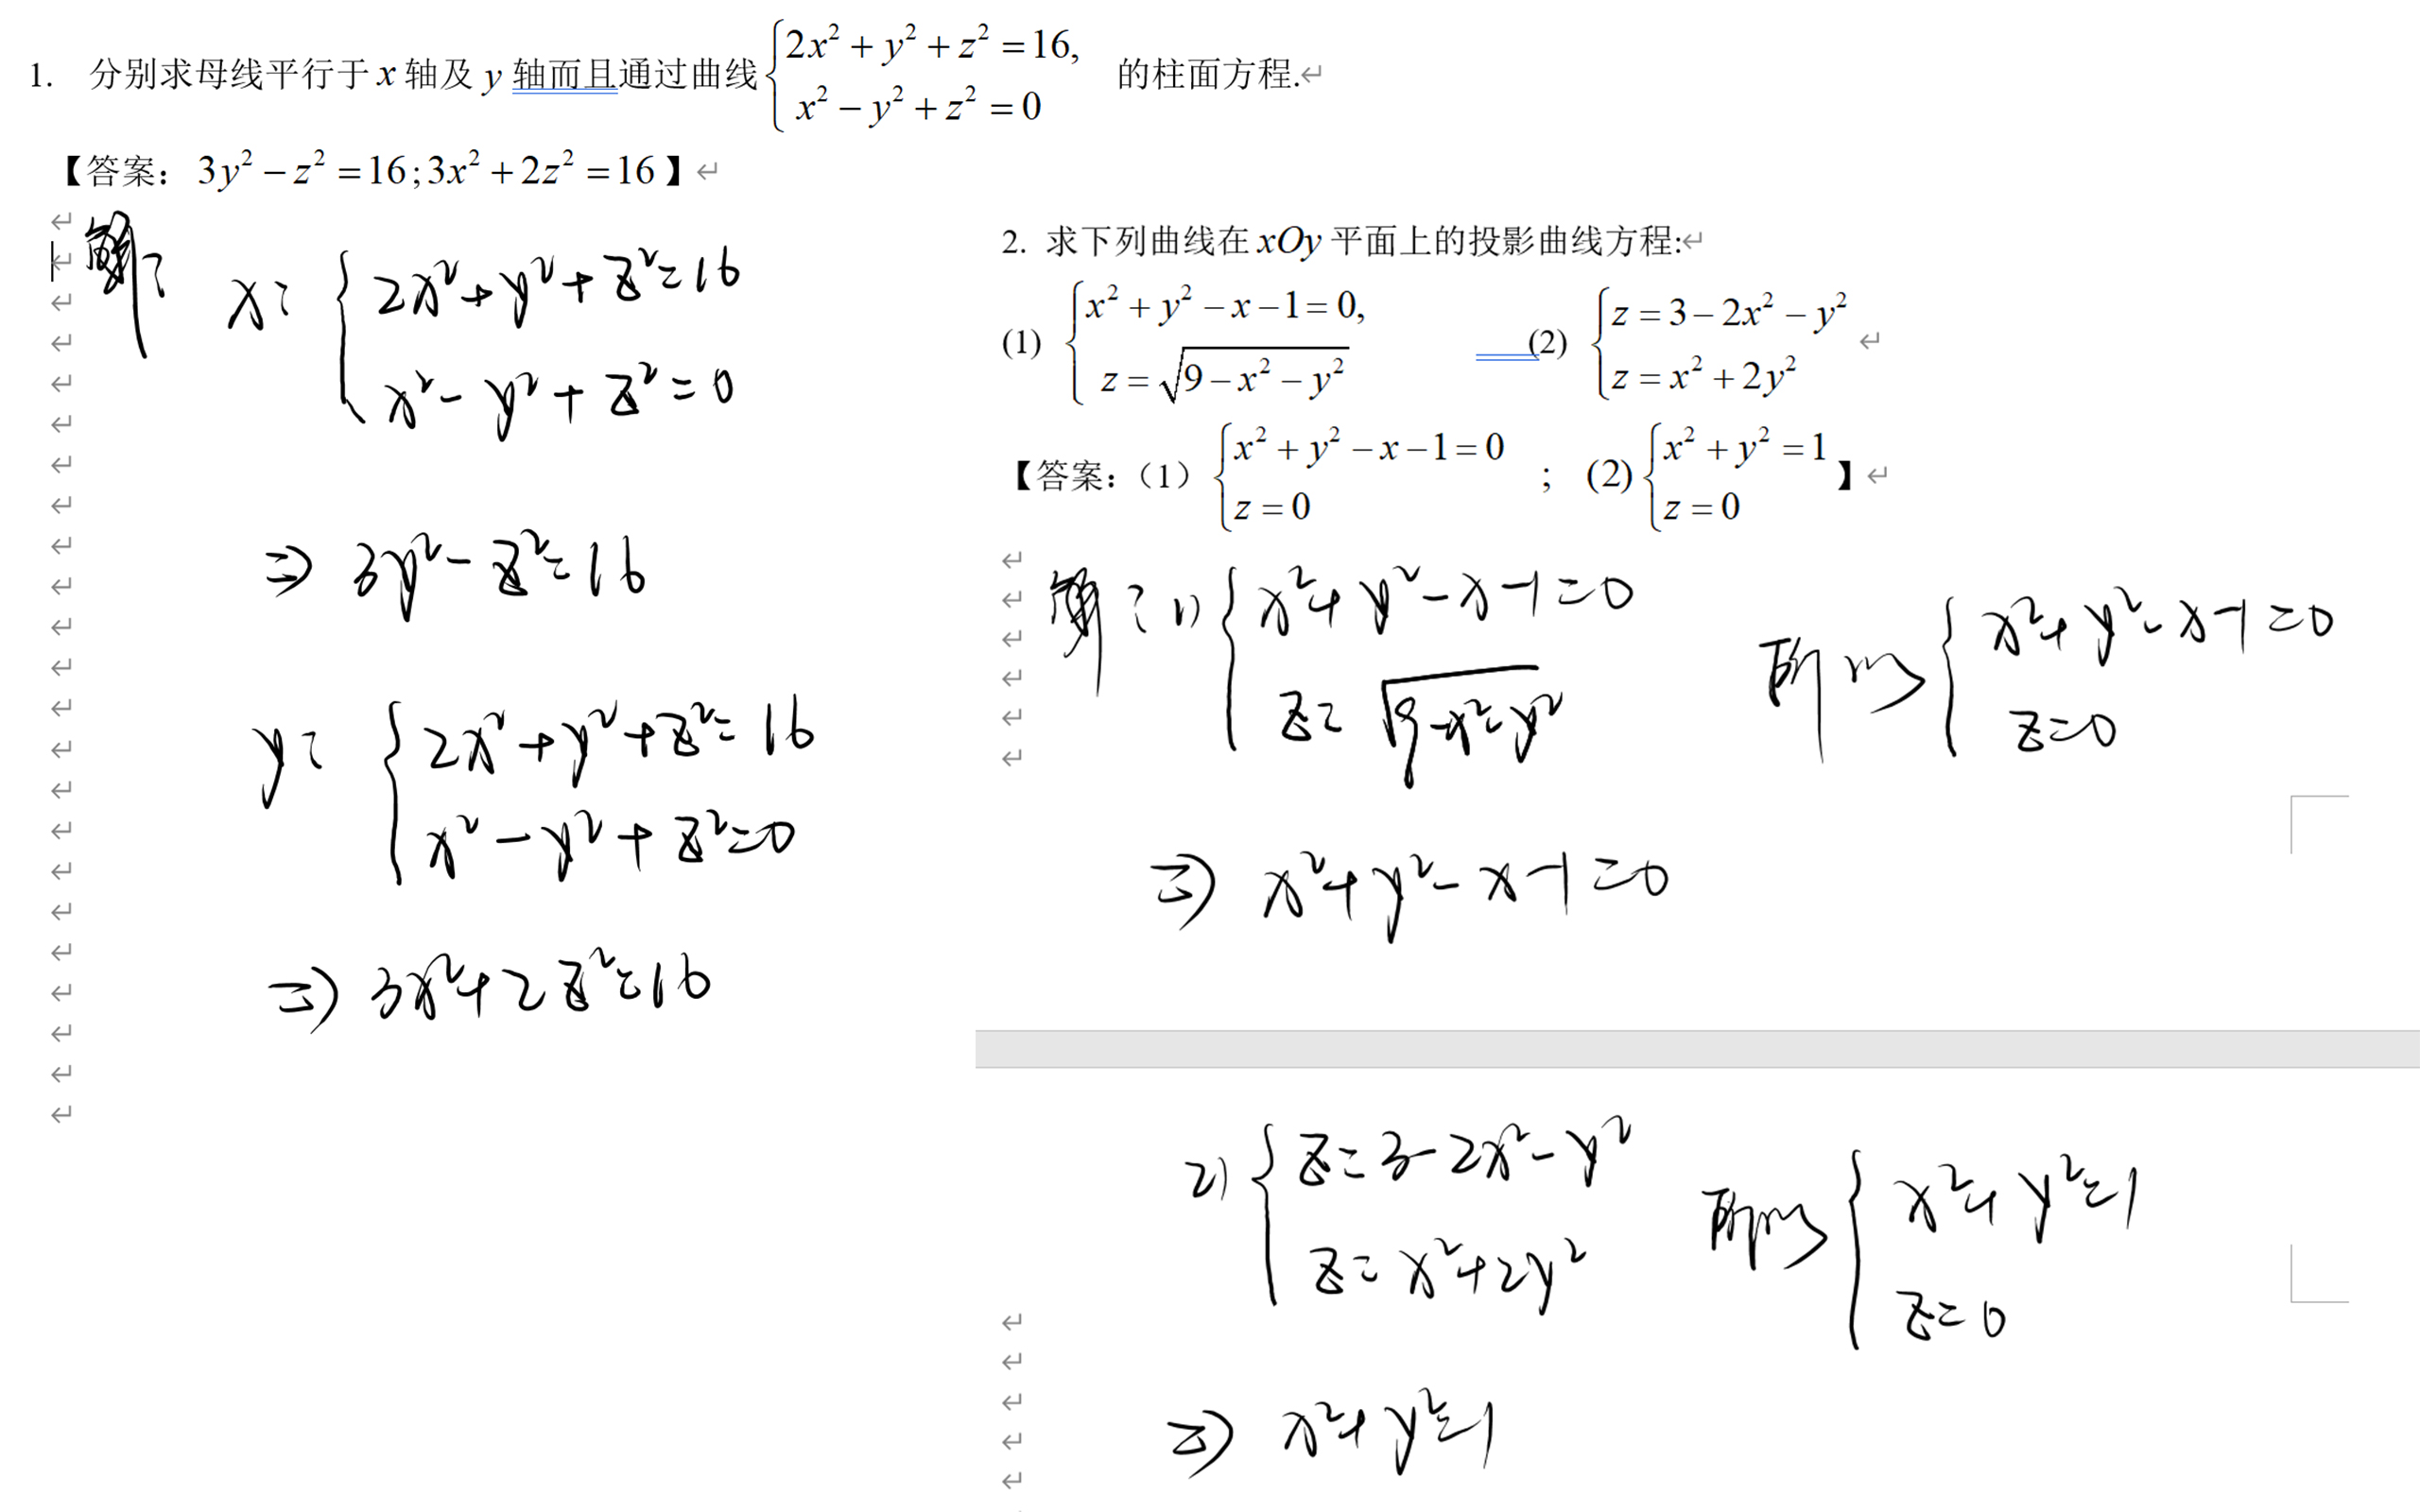 1. 分别求母线平行于 x 轴及 y 轴而且通过曲线 {2x² + y² + z² = 16, x² − y² + z² = 0 的柱面方程.
【答案：3y² − z² = 16; 3x² + 2z² = 16】
解：
x： {2x² + y² + z² = 16
x² − y² + z² = 0
⇒ 3y² − z² = 16
y： {2x² + y² + z² = 16
x² − y² + z² = 0
⇒ 3x² + 2z² = 16
2. 求下列曲线在 xOy 平面上的投影曲线方程:
(1) {x² + y² − x − 1 = 0, z = √(9 − x² − y²) (2) {z = 3 − 2x² − y² z = x² + 2y²
【答案：（1） {x² + y² − x − 1 = 0 z = 0 ； (2) {x² + y² = 1 z = 0】
解：1) {x² + y² − x − 1 = 0
z = √(9 − x² − y²)
⇒ x² + y² − x − 1 = 0
所以 {x² + y² − x − 1 = 0
z = 0
2) {z = 3 − 2x² − y²
z = x² + 2y²
⇒ x² + y² = 1
所以 {x² + y² = 1
z = 0